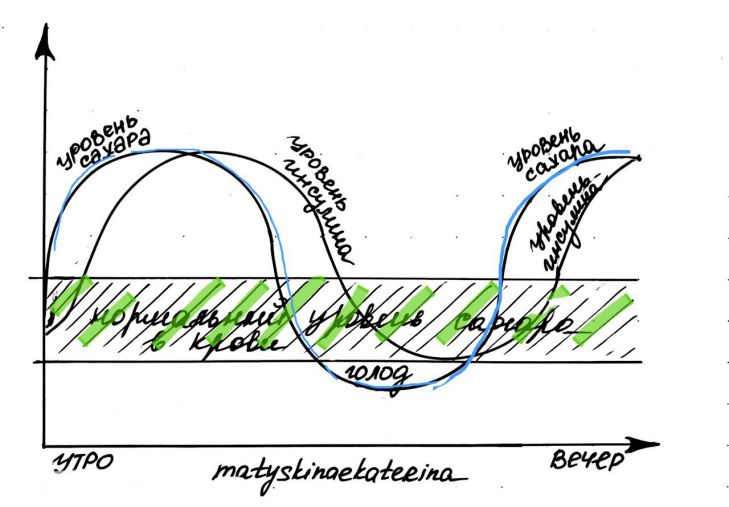 уровень
сахара
уровень
инсулина
уровень
сахара
уровень
инсулина
нормальный уровень сахара
в крови
голод
утро
вечер
matyskinaekaterina